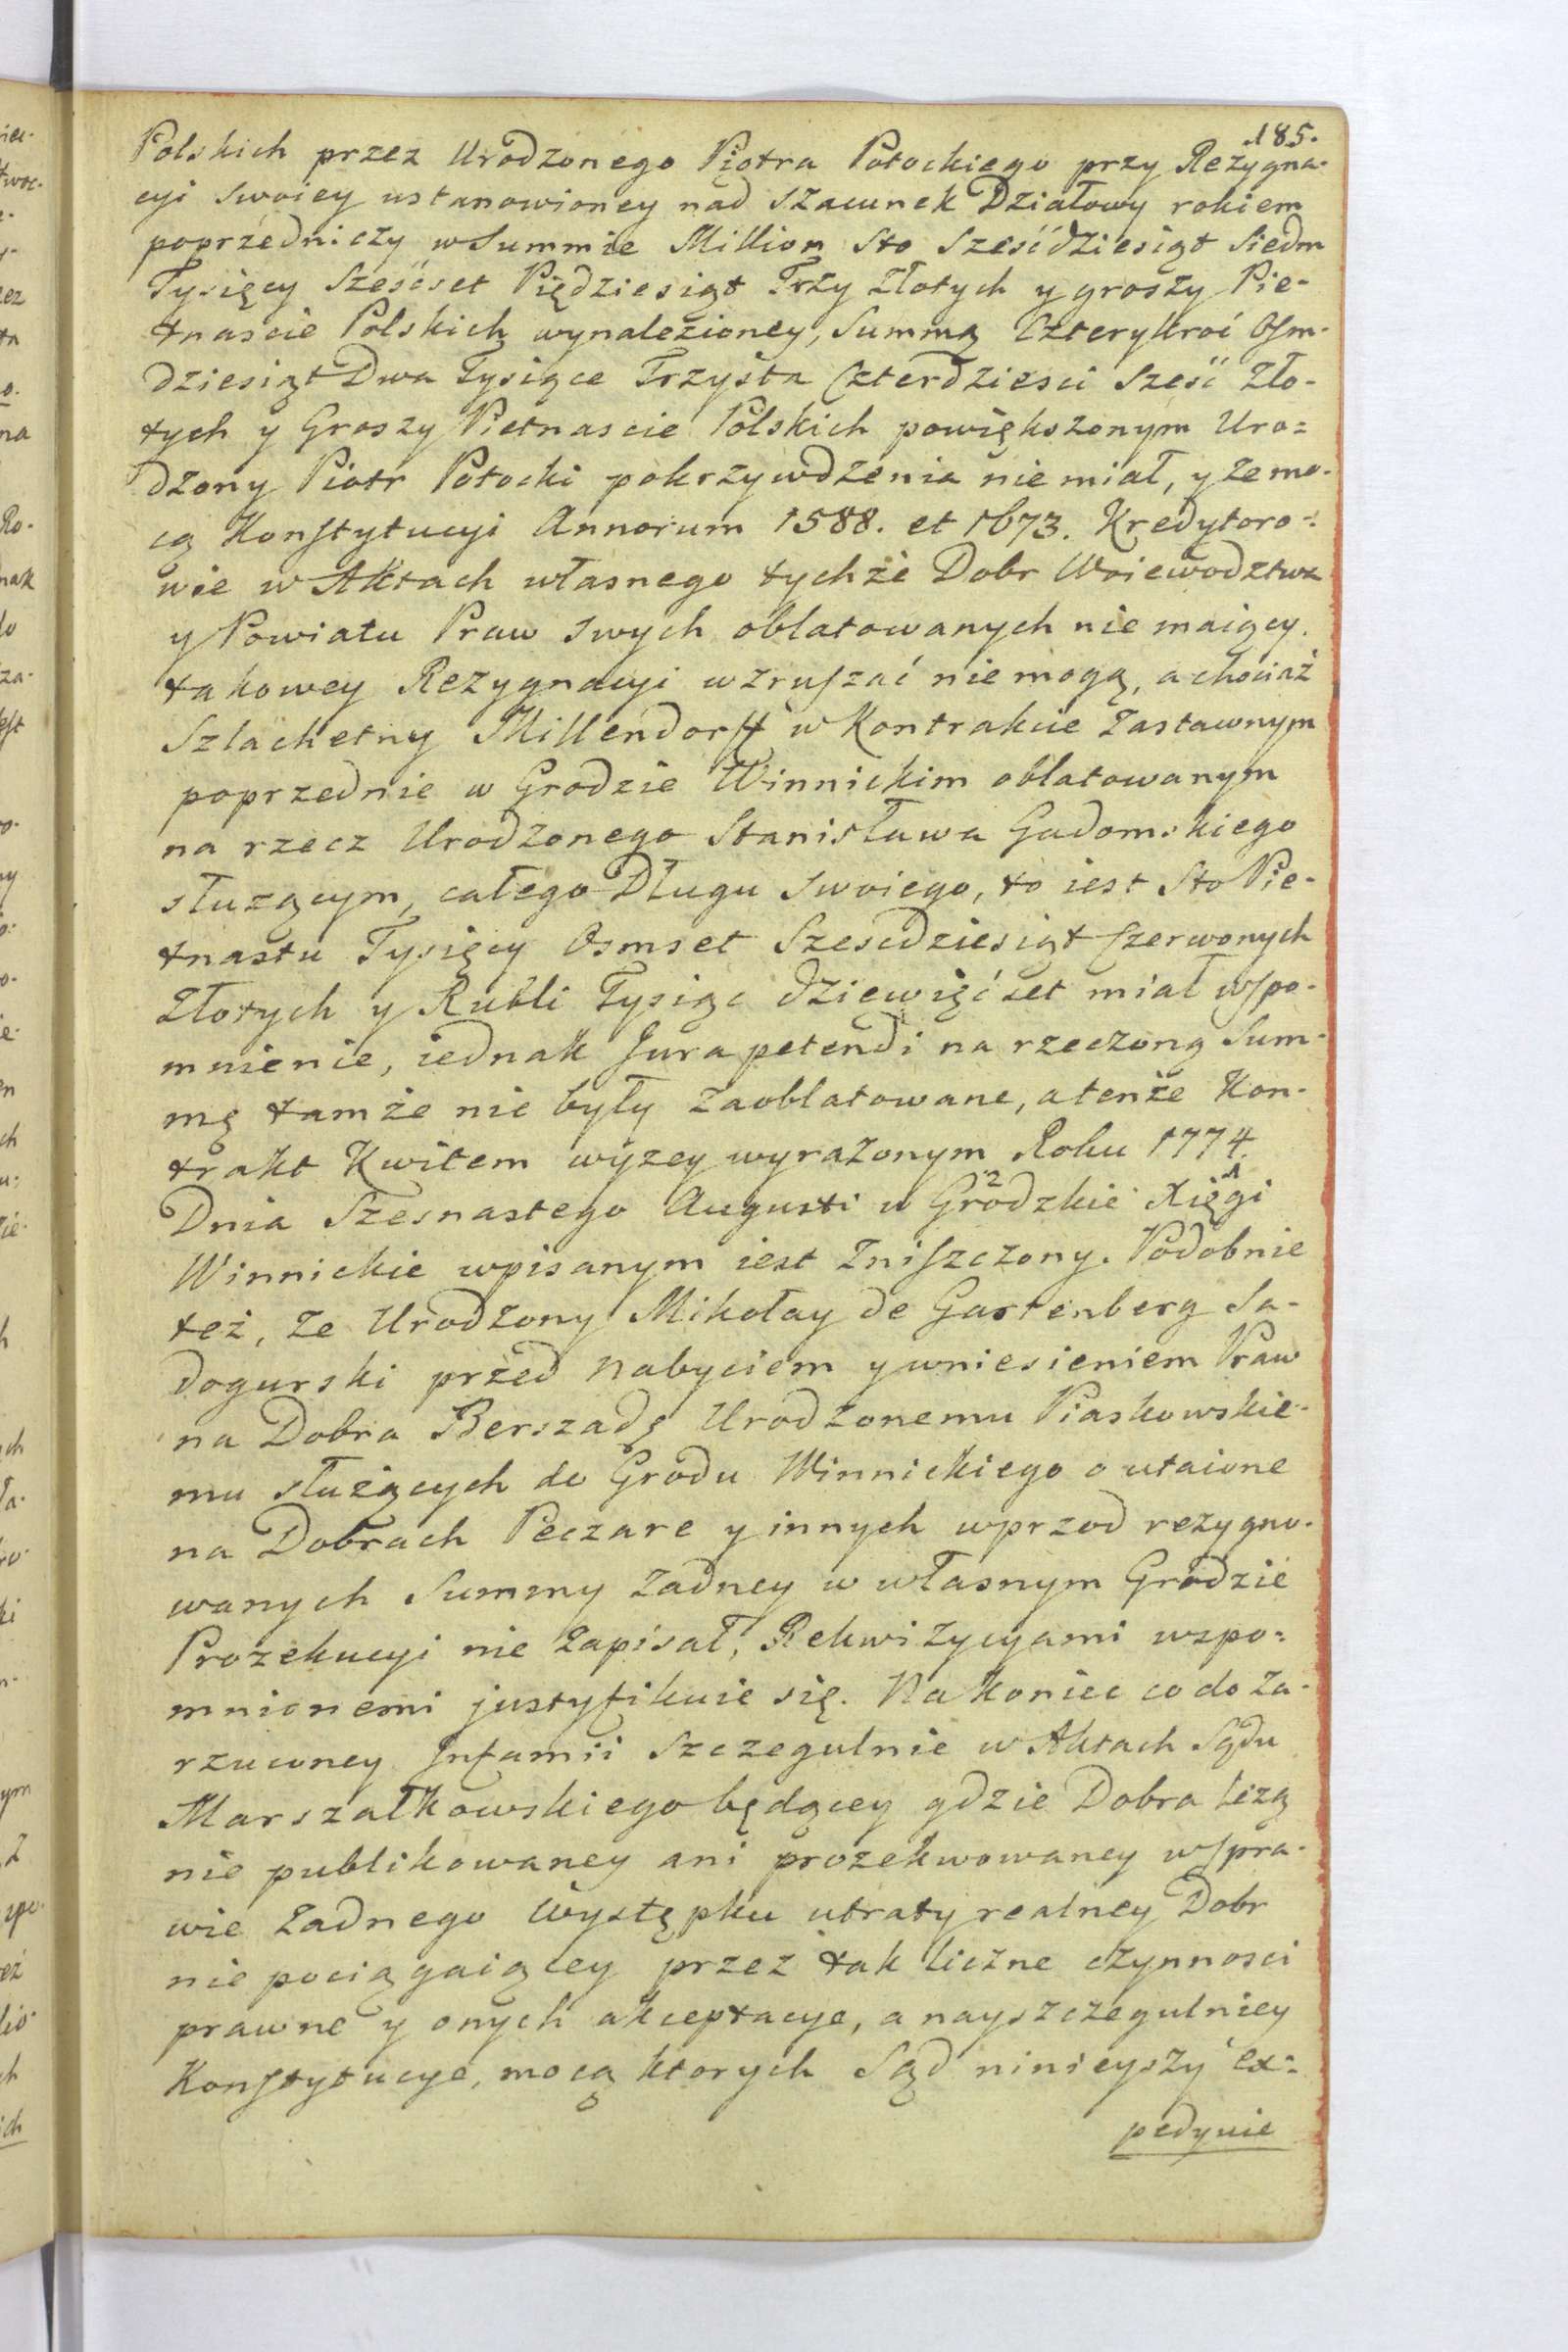 185.
Polskich przez Urodzonego Piotra Potockiego przy Rezygna-
cyi swoiey ustanowioney nad szacunek Działowy rokiem
poprzedniczy w Summie Million sto sześćdziesiąt siedm
Tysięcy sześćset Piędziesiąt Trzy złotych y groszy Pie-
tnascie Polskich wynalezioney, summą Czterykroć Osm-
dziesiąt Dwa Tysiące Trzysta Czterdziesci sześć Zło-
tych y Groszy Pietnascie Polskich powiększonym Uro=
dzony Piotr Potocki pokrzywdzenia nie miał, y że mo-
cą Konstytucyi Annorum 1588. et 1673. Kredytoro-
wie w Aktach własnego tychże Dobr Woiewodztwa
y Powiatu Praw swych oblatowanych nie maiący.
takowey Rezygnacyi wzruszać nie mogą, a chociaż
Szlachetny Millendorff w Kontrakcie zastawnym
poprzednie w Grodzie Winnickim oblatowanym
na rzecz Urodzonego Stanisława Gadomskiego
słuzącym, całego Długu swoiego, to iest Sto Pie-
tnastu Tysięcy Osmset Szescdziesiąt Czerwonych
Złotych y Rubli Tysiąc dziewięćset miał wspo-
mnienie, iednak Jura petendi na rzeczoną Sum-
mę tamże nie były zaoblatowane, a tenże Kon-
trakt Kwitem wyzey wyrazonym Roku 1774.
Dnia Szesnastego Augusti w Grodzkie 2 Xięgi 1
Winnickie wpisanym iest zniszczony. Podobnie
też, ze Urodzony Mikołay de Gartenberg Sa-
dogurski przed nabyciem y wniesieniem Praw
na Dobra Berszadę Urodzonemu Piaskowskie-
mu służących do Grodu Winnickiego o utaione
na Dobrach Peczare y innych wprzod rezygno-
wanych Summy żadney w własnym Grodzie
Prozekucyi nie zapisał, Rekwizycyami wspo=
mnionemi justyfikuie się. Nakoniec co do za-
rzuconey Infamii szczegulnie w Aktach Sądu
Marszałkowskiego będącey gdzie Dobra leżą
nie publikowaney ani prozekwowaney w spra-
wie żadnego występku utraty realney Dobr
nie pociągaiącey przez tak liczne czynnosci
prawne y onych akceptacye, a nayszczegulniey
Konstytucye, mocą ktorych Sąd ninieyszy ex=
pedyuie